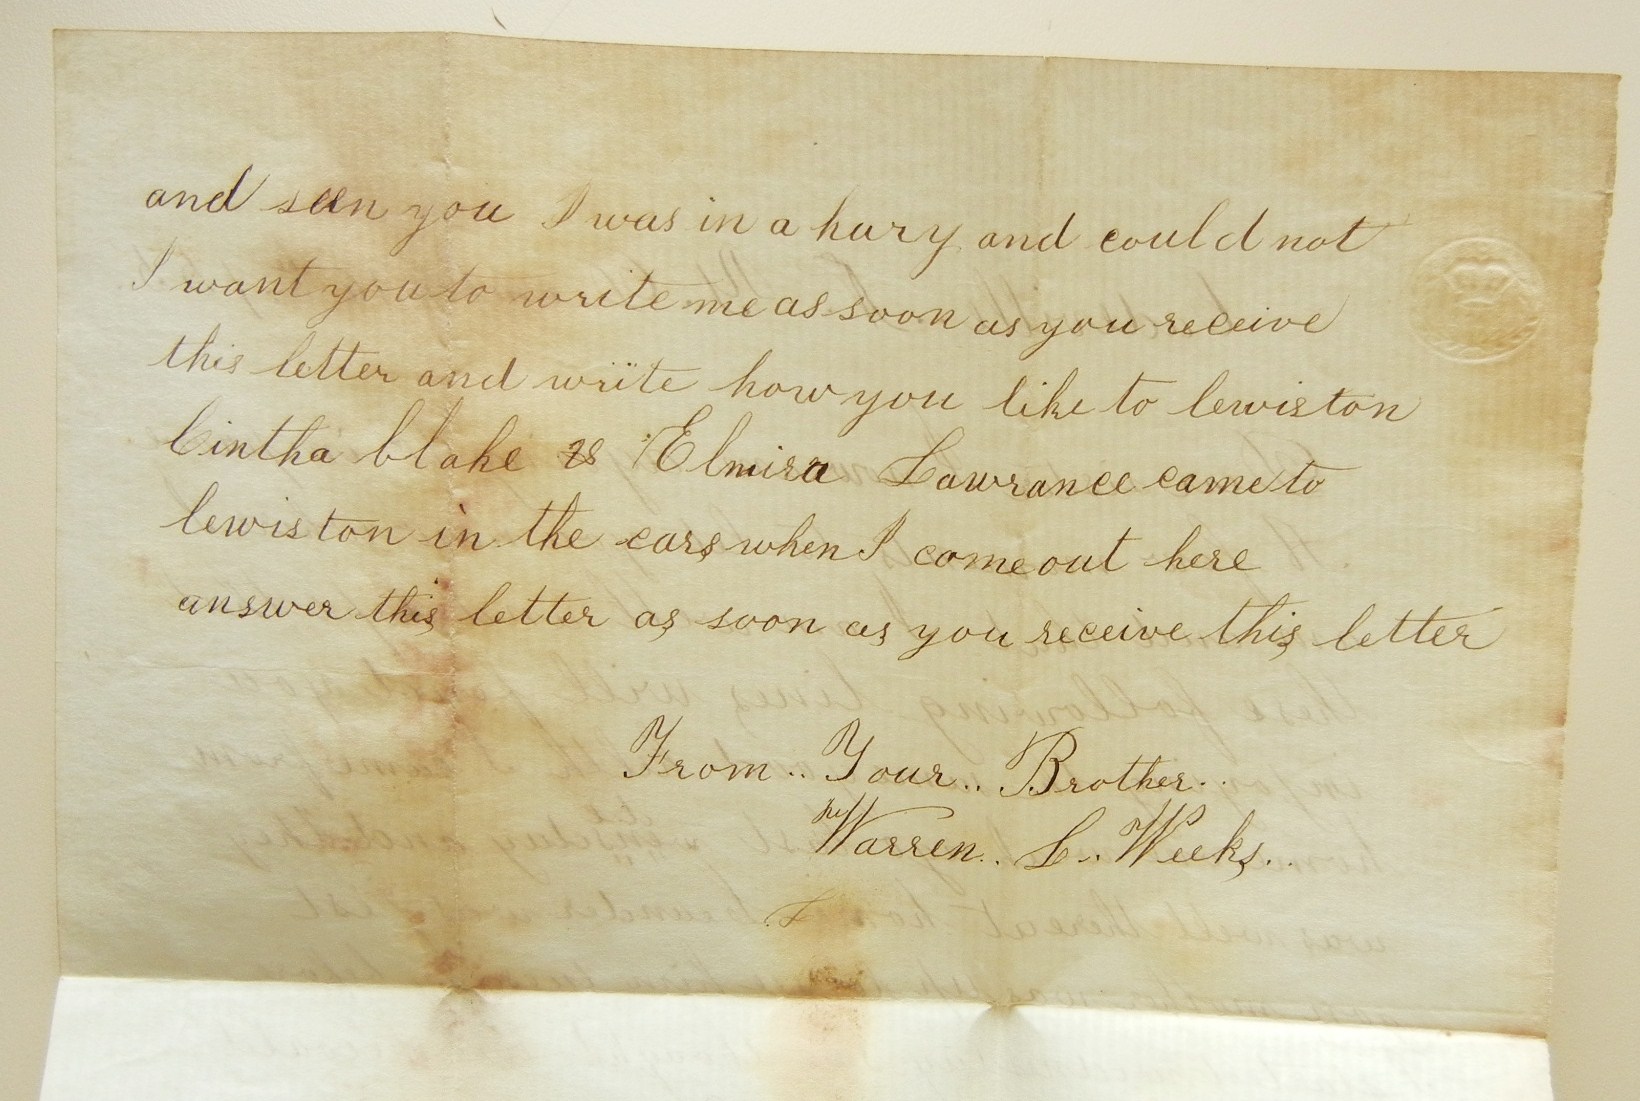 and seen you I was in a hury and could not
I want you to write me as soon as you receive
this letter and write how you like to lewiston
Cintha blake & Elmira Lawrance came to
lewiston in the cars when I come out here
answer this letter as soon as you receive this letter
From .. Your .. Brother ..
Warren .. L .. Weeks ..